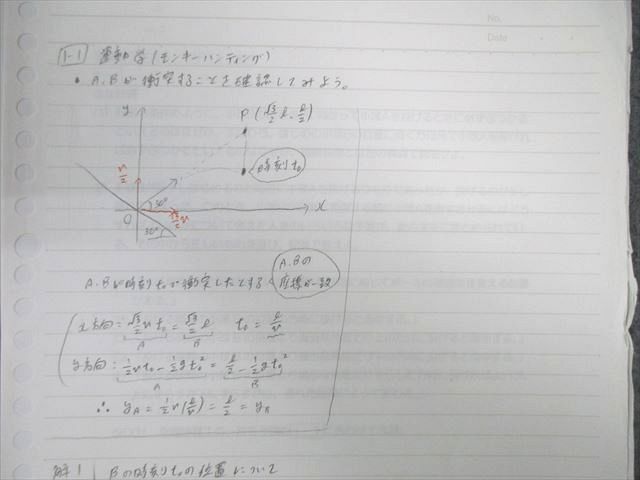 No.
Date
1-1 運動学(モンキーハンティング)
• A.Bが衝突することを確認してみよう。
y
P(√3/2 l, l/2)
v/2
時刻t₀
30°
O
√3/2 v
x
30°
A.Bが時刻t₀で衝突したとする
A.Bの座標が一致
x方向: √3/2 v t₀ = √3/2 l t₀ = l/v
A B
y方向: 1/2 v t₀ - 1/2 g t₀² = l/2 - 1/2 g t₀²
A B
∴ y_A = 1/2 v (l/v) = l/2 = y_B
解1 Bの時刻t₀の位置について